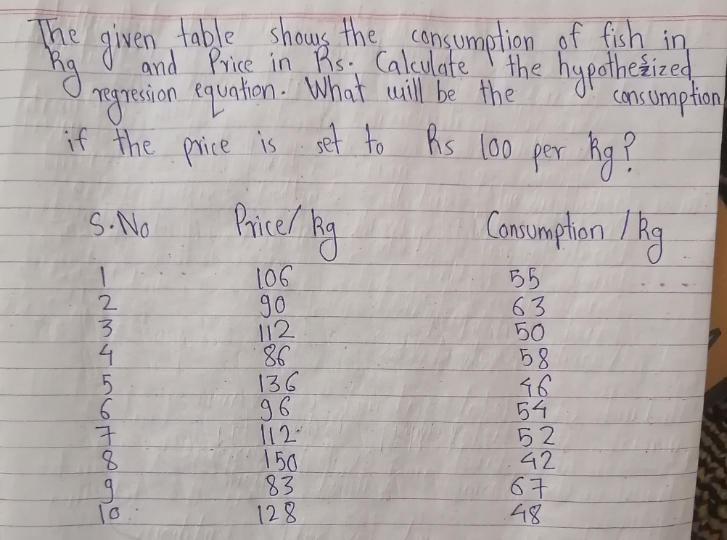 The given table shows the consumption of fish in
Kg and Price in Rs. Calculate the hypothesized
regression equation. What will be the consumption
if the price is set to Rs 100 per Kg?
S.No Price/Kg Consumption/Kg
1 106 55
2 90 63
3 112 50
4 86 58
5 136 46
6 96 54
7 112 52
8 150 42
9 83 67
10 128 48